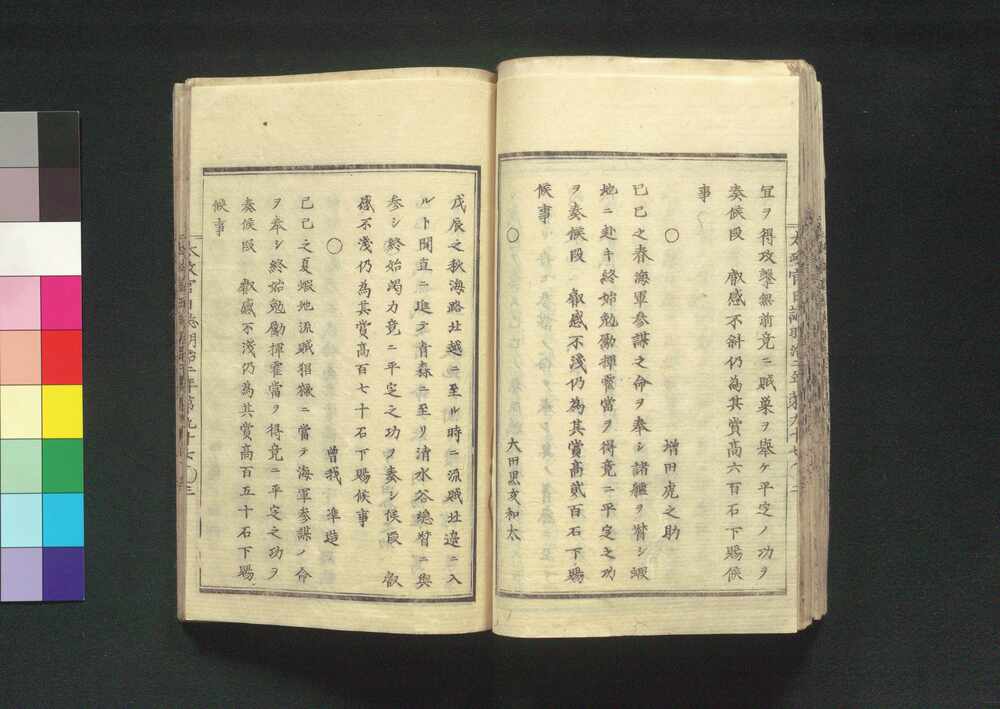 宜ヲ得攻撃無前竟ニ賊巣ヲ擧ケ平定ノ功ヲ
奏候段 叡感不斜仍為其賞高六百石下賜候
事
○ 増田虎之助
己巳之春海軍參謀之命ヲ奉シ諸艦ヲ督シ蝦
地ニ赴キ終始勉勵揮霍當ヲ得竟ニ平定之功
ヲ奏候段 叡感不淺仍為其賞高貳百石下賜
候事
○ 大田黒亥和太
戊辰之秋海路北越ニ至ル時ニ流賊北邉ニ入
ルト聞直ニ進テ青森ニ至リ清水谷總督ニ與
參シ終始竭力竟ニ平定之功ヲ奏シ候段 叡
感不淺仍為其賞高百七十石下賜候事
○ 曽我 準造
己巳之夏蝦地流賊猖獗ニ當テ海軍參謀ノ命
ヲ奉シ終始勉勵揮霍當ヲ得竟ニ平定之功ヲ
奏候段 叡感不淺仍為其賞高百五十石下賜
候事
太政官日誌明治二年第九十七 ○三